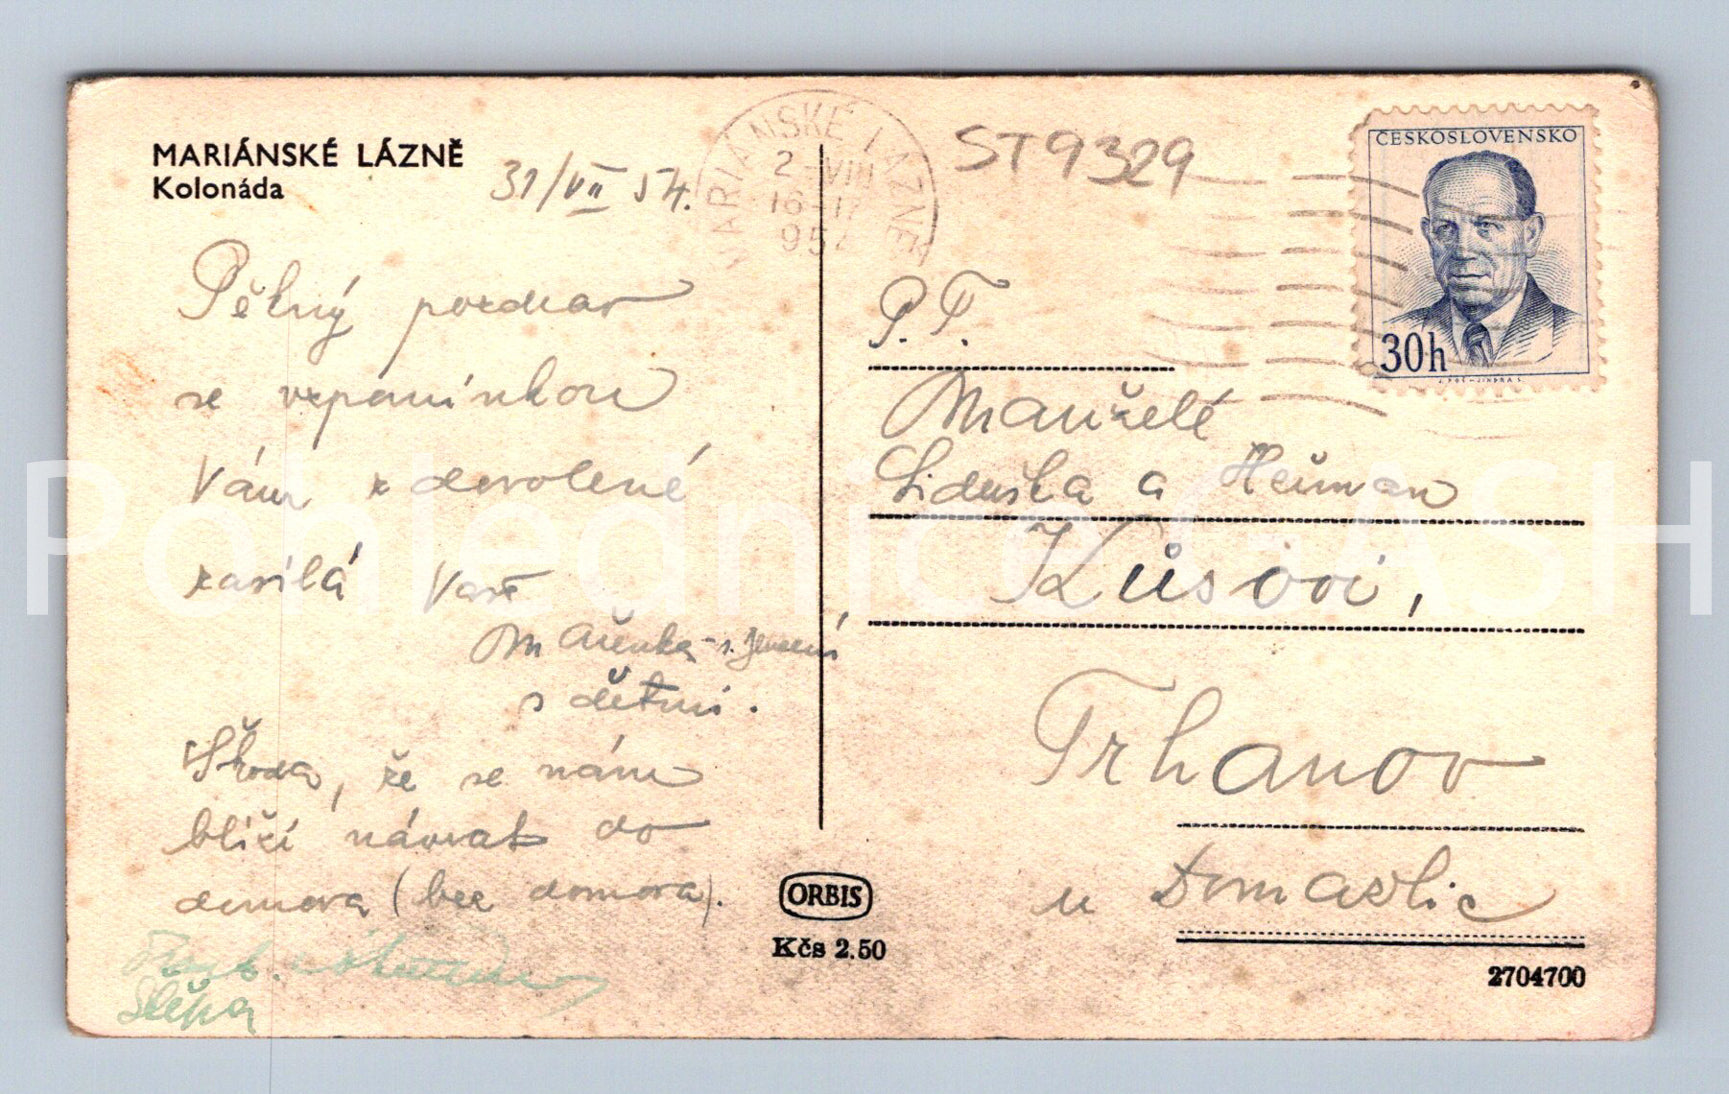 MARIÁNSKÉ LÁZNĚ
Kolonáda
31/VII 54.
MARIÁNSKÉ LÁZNĚ
2.-VIII
16-17
954
ST9329
ČESKOSLOVENSKO
30h
Pěkný pozdrav
se vzpomínkou
Vám z dovolené
zasílá Vaše
Mařenka
s dětmi.
Škoda, že se nám
blíží návrat do
domova (bez domova).
Slépka
P.T.
Manželé
Liduška a Heřman
Kůsovi,
Trhanov
u Domažlic
ORBIS
Kčs 2.50
2704700
Pohlednice GASH